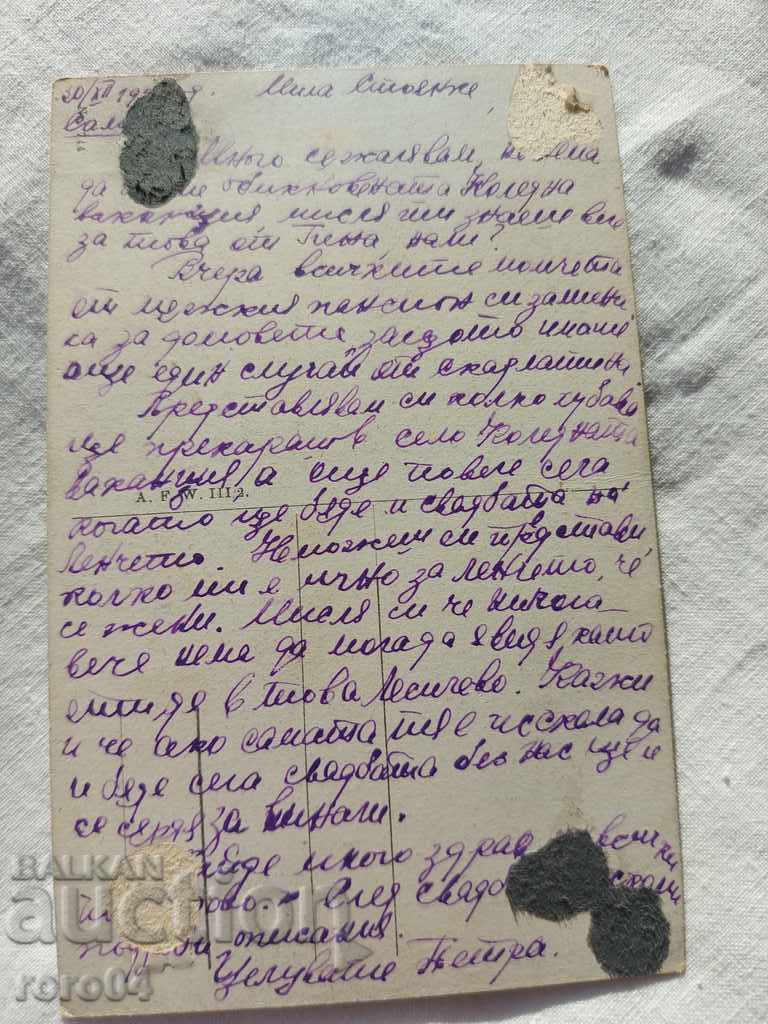 20/XII 19
Мила Стоянке,
Много съжалявам, че няма
да обикновената Коледна
ваканция мисля ти знаеш вече
за това от Гина, нали?
Вчера всичките момчета
от мъжкия пансион си замина
ха за домовете, защото имаше
още един случай от скарлатина
Представлявам си колко хубаво
ще прекараш в село Коледната
ваканция а още повече сега
A. F. W. III/2.
когато ще бъде и свадбата на
Ленчето. Неможеш си представи
колко ми е мъчно за Ленчето, че
се жени. Мисля си че никога
вече нема да мога да я видя като
отида в това Лесичево. Кажи
и че ако самата тя е искала да
и бъде сега свадбата без нас ще и
се сърдя за винаги.
много здраве на всички
След свадбата
описания.
Целувките Петра.
BALKAN
auction
roro04